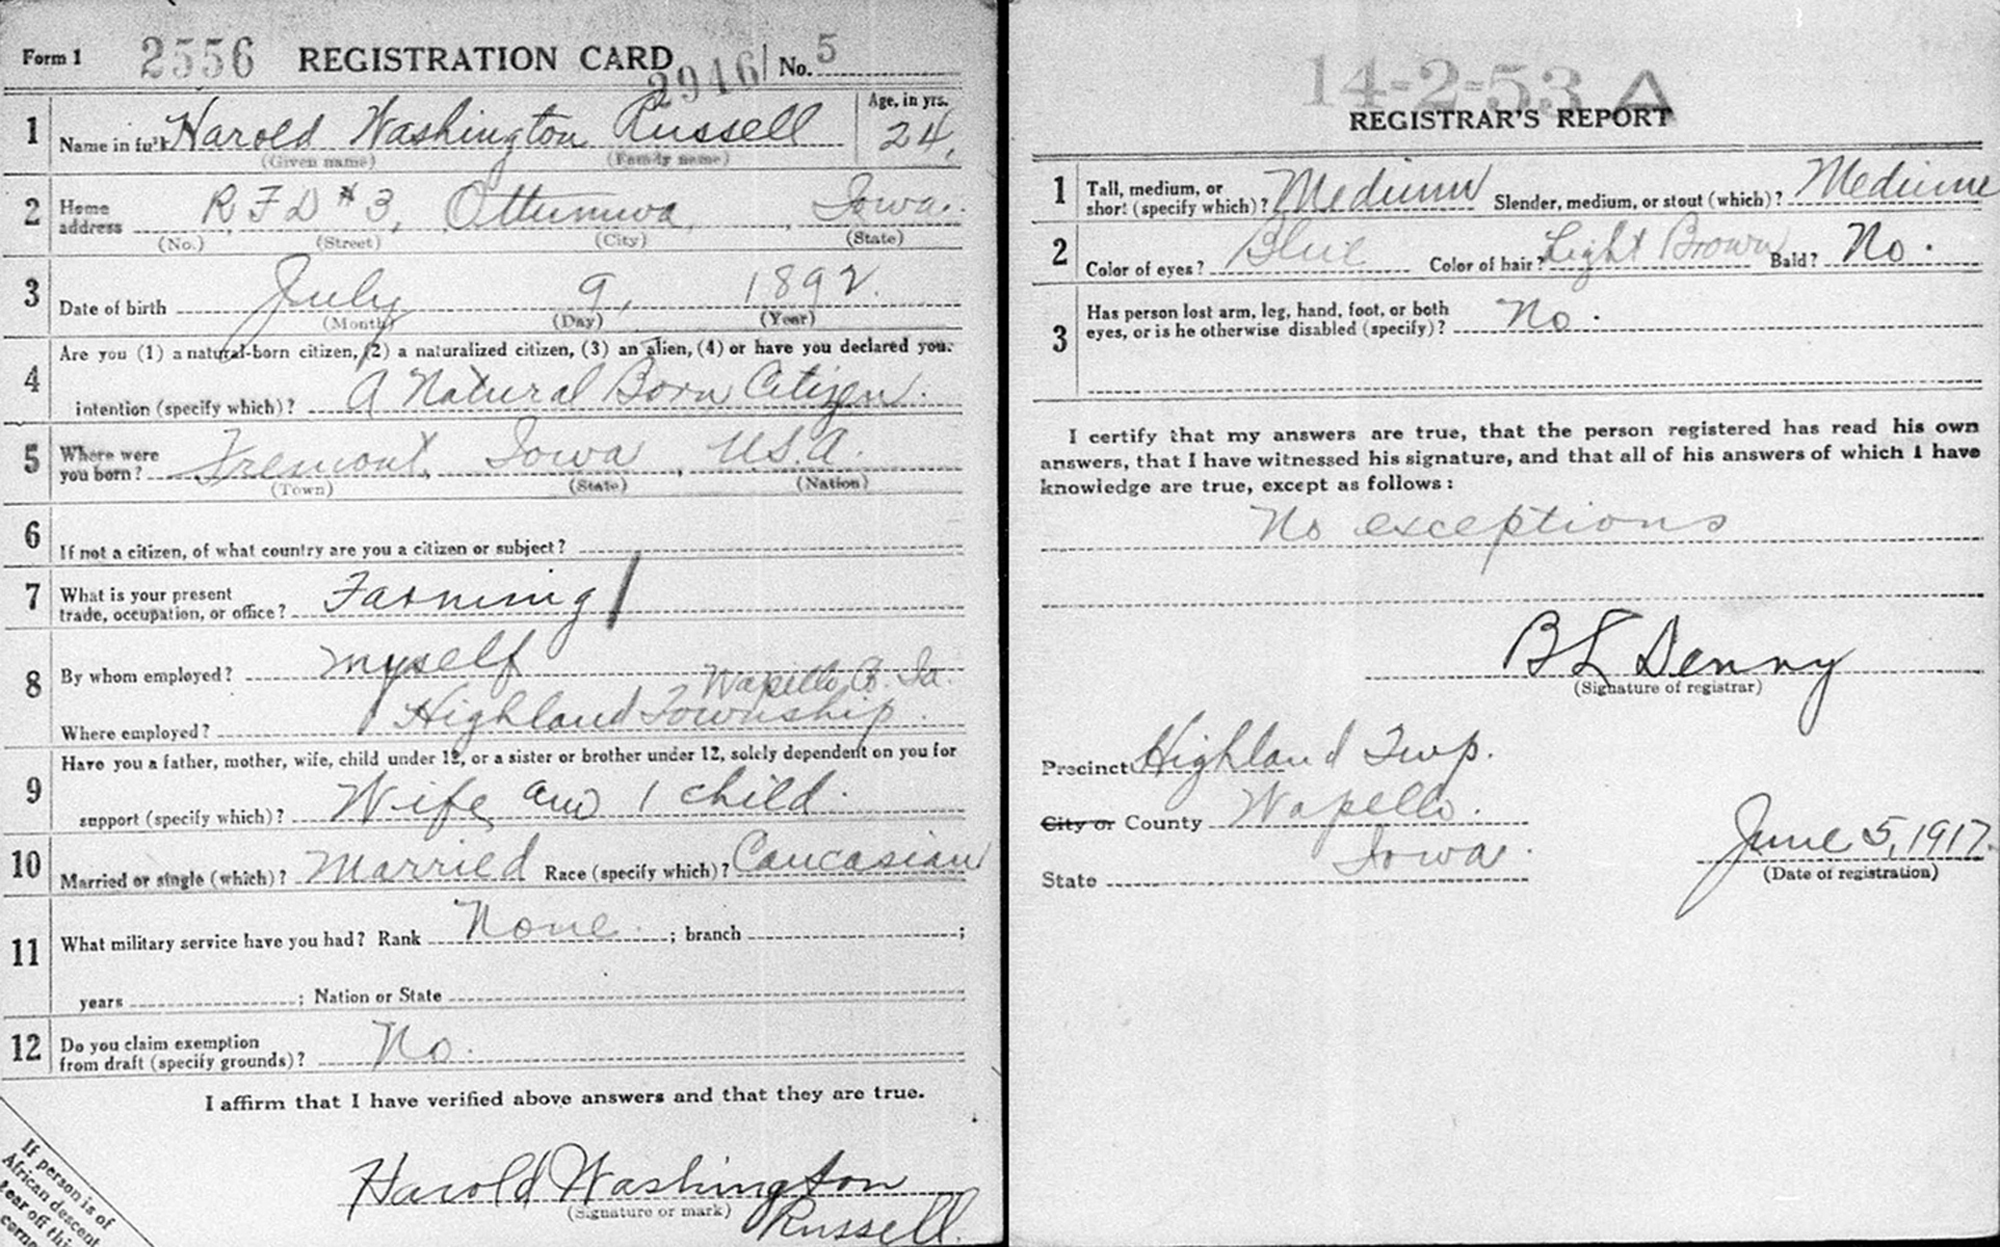 Form 1 2556 REGISTRATION CARD 2946 No. 5
1 Name in full Harold Washington Russell Age, in yrs. 24.
(Given name) (Family name)
2 Home address R F D # 3, Ottumwa, Iowa.
(No.) (Street) (City) (State)
3 Date of birth July 9, 1892.
(Month) (Day) (Year)
4 Are you (1) a natural-born citizen, (2) a naturalized citizen, (3) an alien, (4) or have you declared your
intention (specify which)? A Natural Born Citizen.
5 Where were you born? Fremont, Iowa, U.S.A.
(Town) (State) (Nation)
6 If not a citizen, of what country are you a citizen or subject?
7 What is your present
trade, occupation, or office? Farming
8 By whom employed? myself
Wapello Co. Ia.
Where employed? Highland Township.
9 Have you a father, mother, wife, child under 12, or a sister or brother under 12, solely dependent on you for
support (specify which)? Wife and 1 child.
10 Married or single (which)? Married Race (specify which)? Caucasian
11 What military service have you had? Rank None. ; branch ;
years ; Nation or State
12 Do you claim exemption
from draft (specify grounds)? No.
I affirm that I have verified above answers and that they are true.
Harold Washington
(Signature or mark) Russell.
If person is of
African descent
tear off this
corne
14-2-53 A
REGISTRAR'S REPORT
1 Tall, medium, or
short (specify which)? Medium Slender, medium, or stout (which)? Medium
2 Color of eyes? Blue Color of hair? Light Brown Bald? No.
3 Has person lost arm, leg, hand, foot, or both
eyes, or is he otherwise disabled (specify)? No.
I certify that my answers are true, that the person registered has read his own
answers, that I have witnessed his signature, and that all of his answers of which I have
knowledge are true, except as follows:
No exceptions
B L Denny
(Signature of registrar)
Precinct Highland Twp.
City or County Wapello.
State Iowa.
June 5, 1917.
(Date of registration)